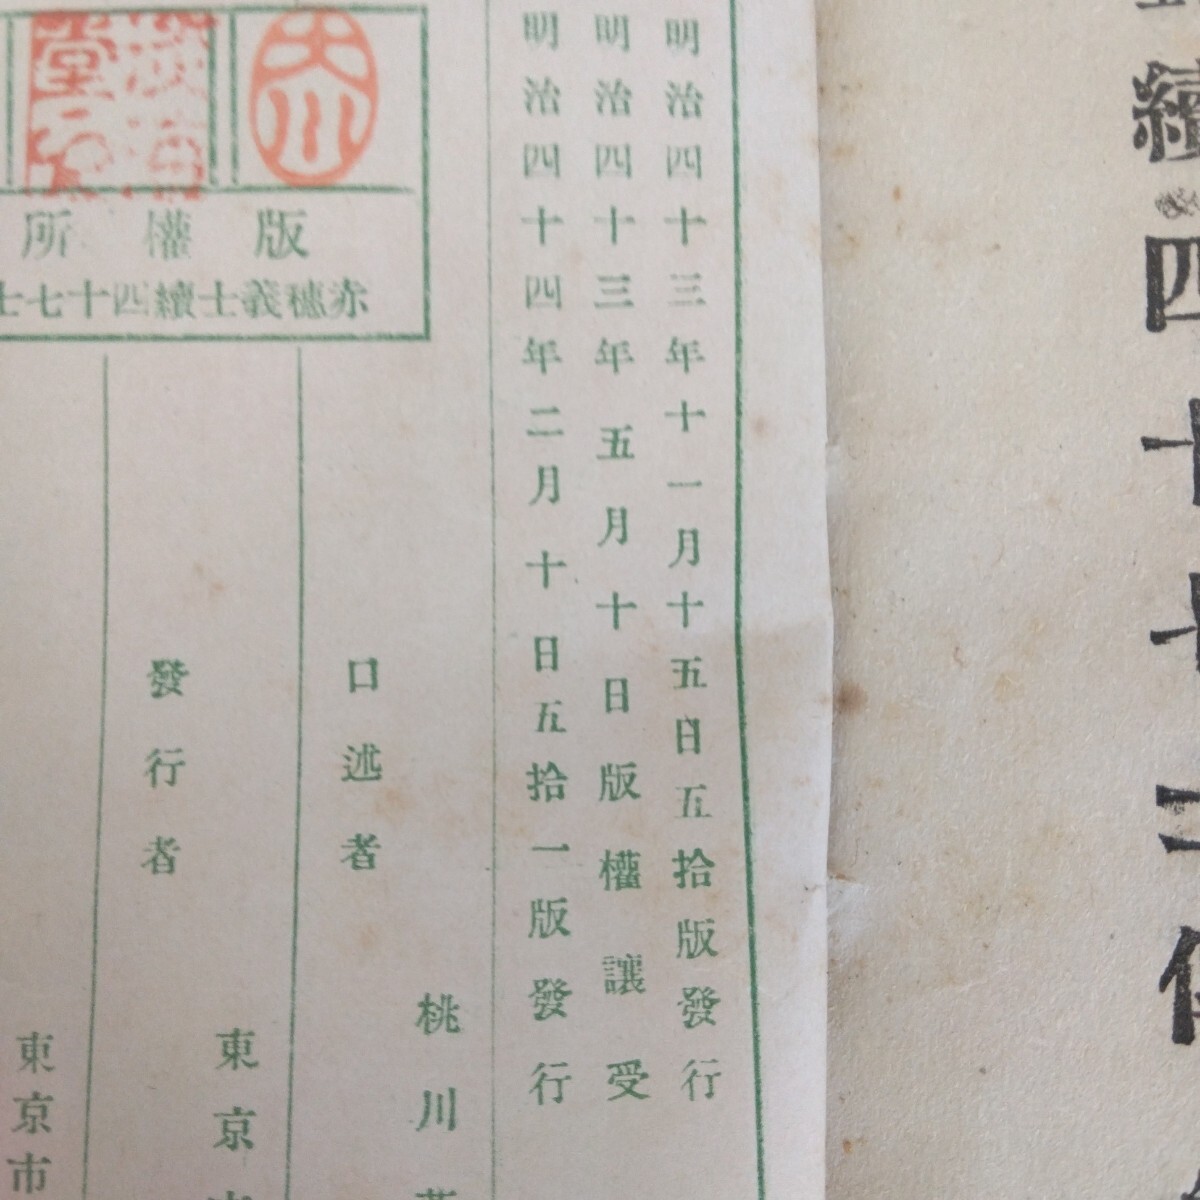 續
四十七士
明治四十三年十一月十五日五拾版發行
明治四十三年五月十日版權讓受
明治四十四年二月十日五拾一版發行
大川
版權所
赤穗義士續四十七士
口述者
桃川
發行者
東京市
東京市